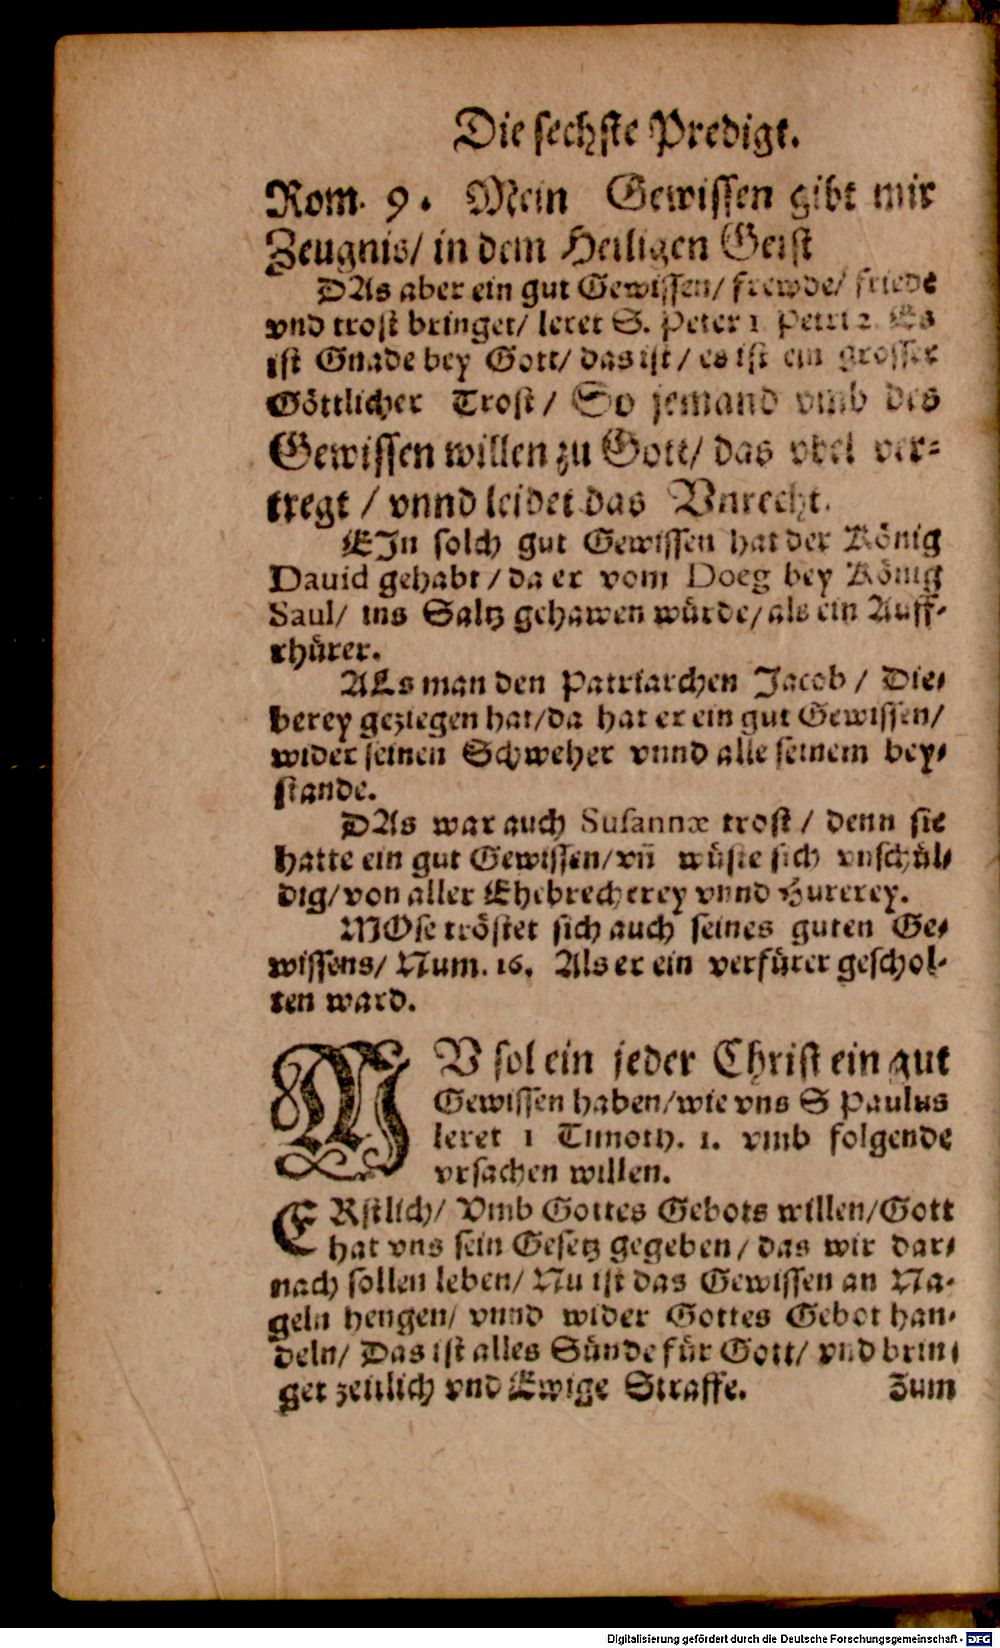 Die sechste Predigt.
Rom. 9. Mein Gewissen gibt mir
Zeugnis/ in dem Heiligen Geist
DAs aber ein gut Gewissen/ frewde/ friede
vnd trost bringet/ leret S. Peter 1 Petri 2. Es
ist Gnade bey Gott/ das ist/ es ist ein grosser
Göttlicher Trost/ So jemand vmb des
Gewissen willen zu Gott/ das vbel ver-
tregt / vnnd leidet das Vnrecht.
EJn solch gut Gewissen hat der König
Dauid gehabt / da er vom Doeg bey König
Saul/ ins Saltz gehawen würde/ als ein Auff-
rhürer.
ALs man den Patriarchen Jacob / Die-
berey geziegen hat/da hat er ein gut Gewissen/
wider seinen Schweher vnnd alle seinem bey-
stande.
DAs war auch Susannæ trost / denn sie
hatte ein gut Gewissen/ vñ wüste sich vnschül-
dig/ von aller Ehebrecherey vnnd Hurerey.
MOse tröstet sich auch seines guten Ge-
wissens/ Num. 16. Als er ein verfürer geschol-
ten ward.
NV sol ein jeder Christ ein gut
Gewissen haben/wie vns S Paulus
leret 1 Timoth. 1. vmb folgende
vrsachen willen.
ERstlich/ Vmb Gottes Gebots willen/Gott
hat vns sein Gesetz gegeben / das wir dar-
nach sollen leben/ Nu ist das Gewissen an Na-
geln hengen/ vnnd wider Gottes Gebot han-
deln/ Das ist alles Sünde für Gott/ vnd brin-
get zeitlich vnd Ewige Straffe.
Zum
Digitalisierung gefördert durch die Deutsche Forschungsgemeinschaft - DFG